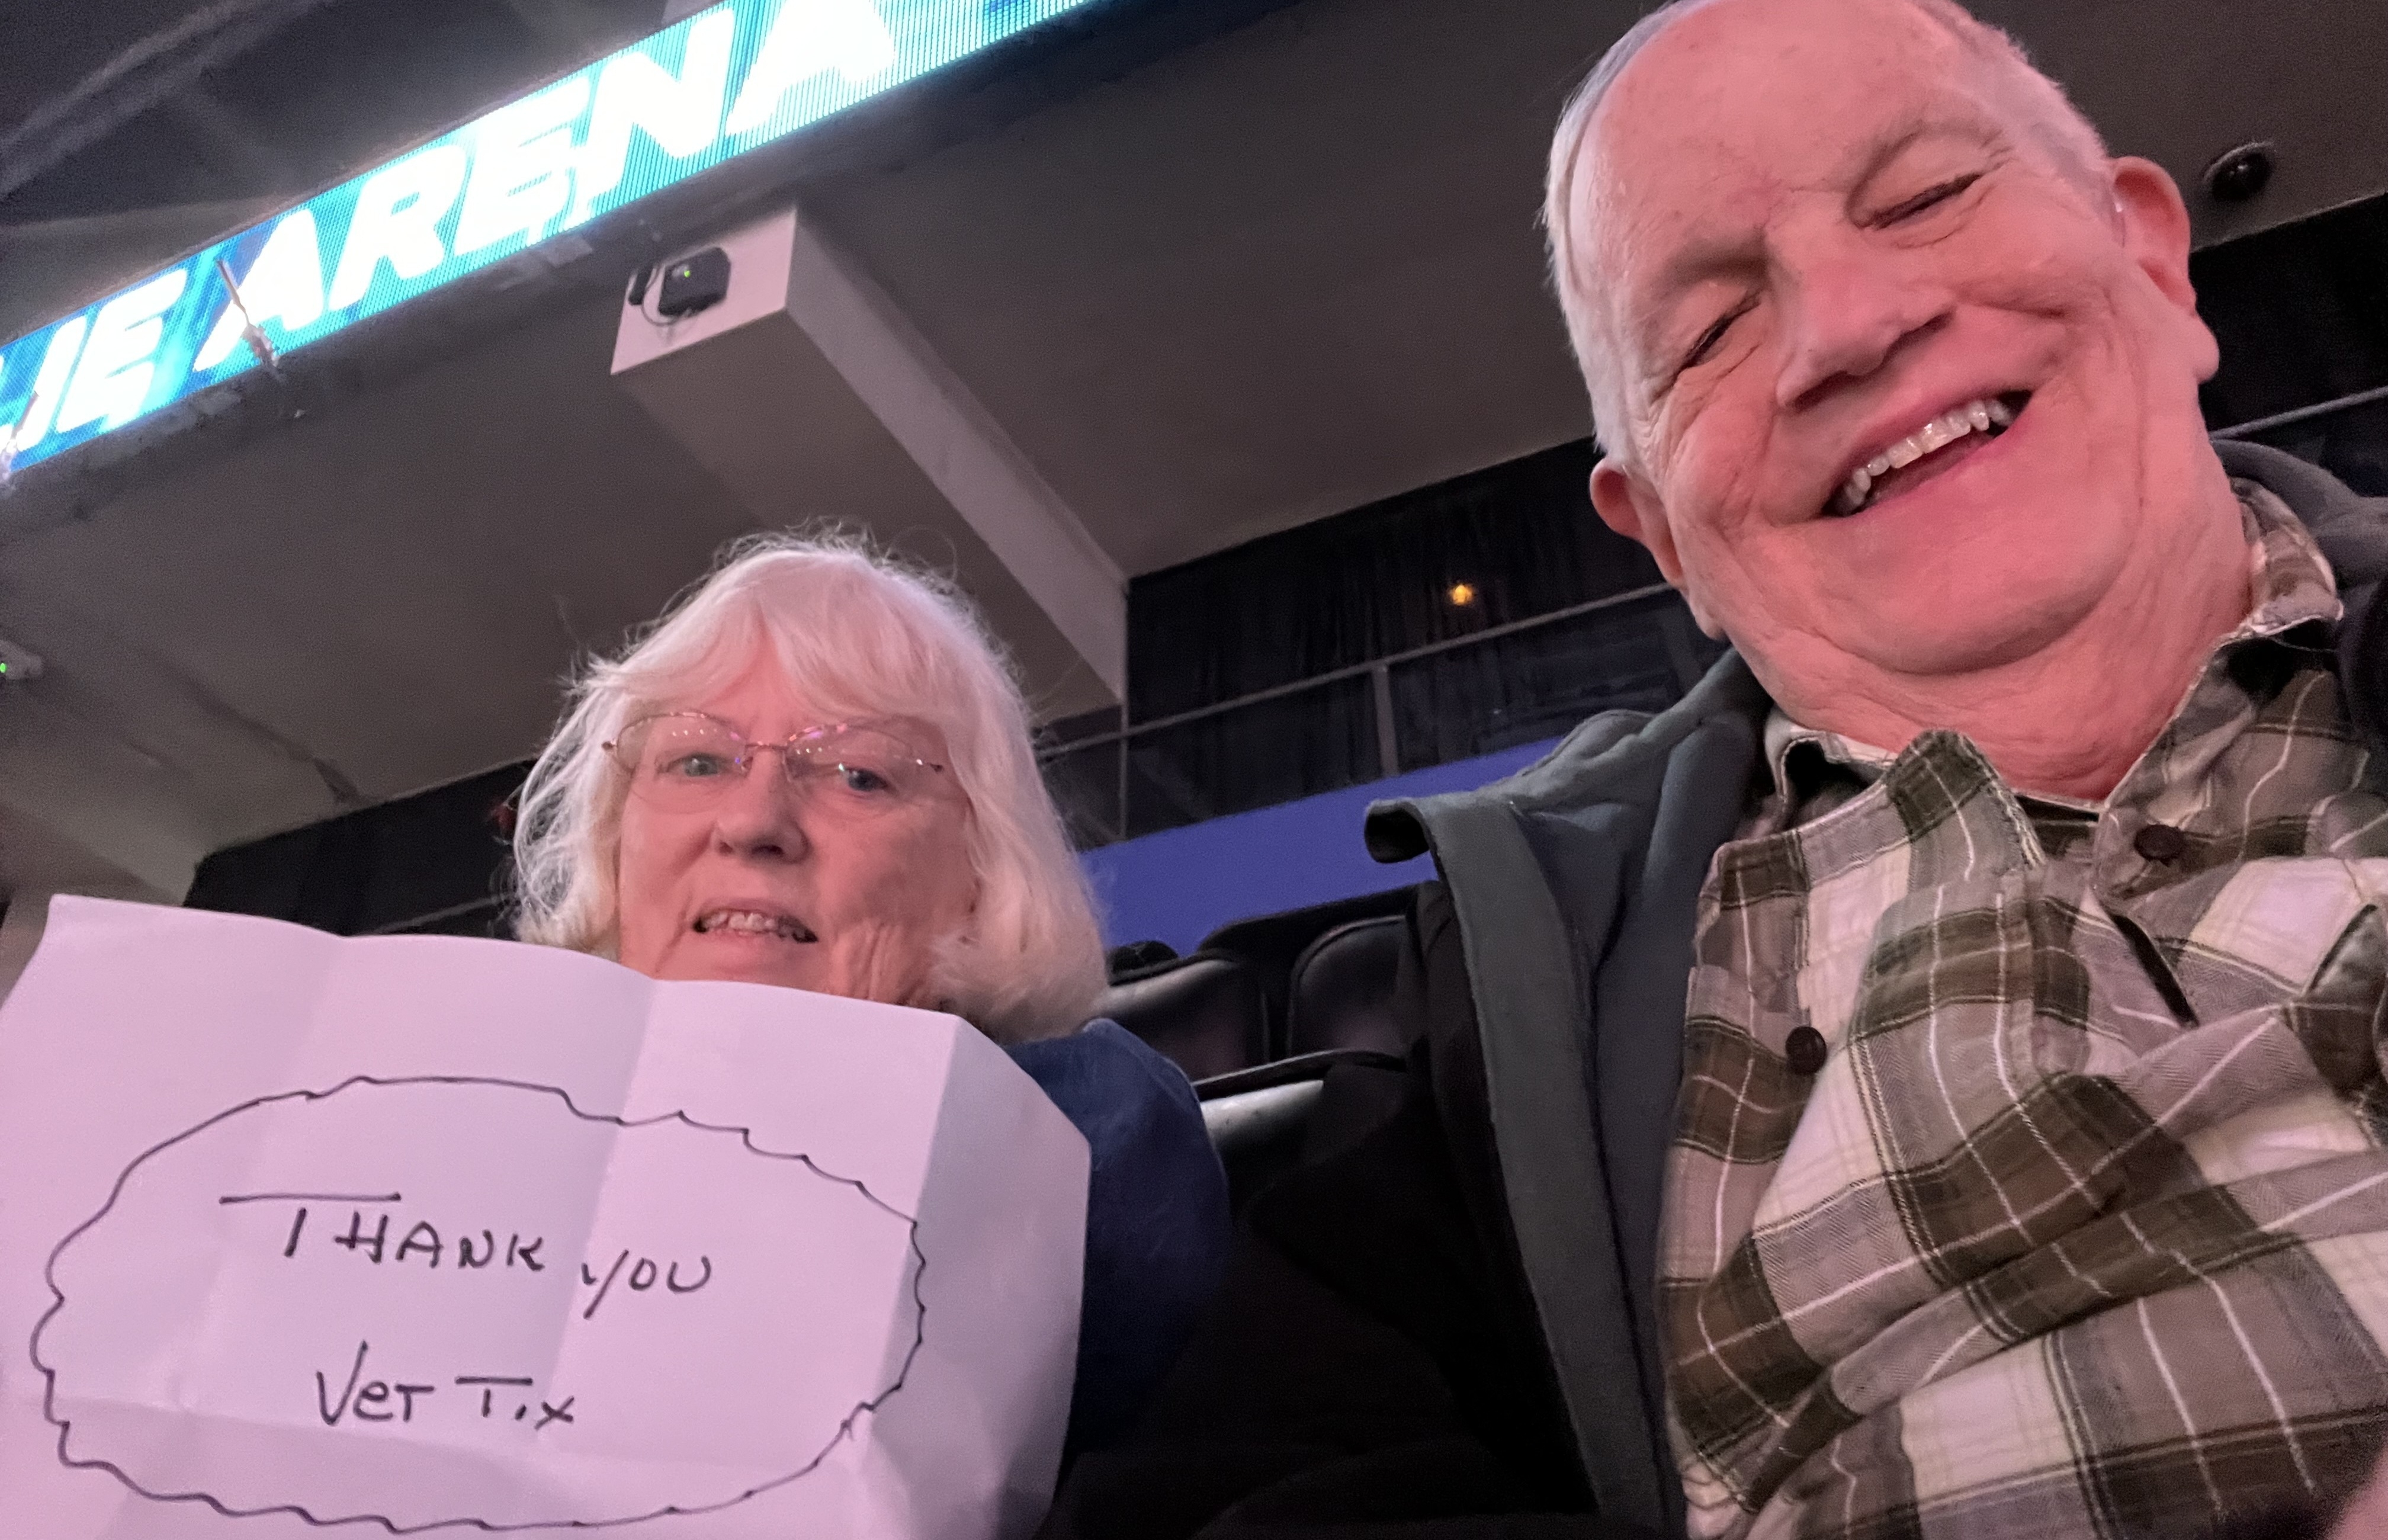 ARENA
THANK YOU
Vet Tix